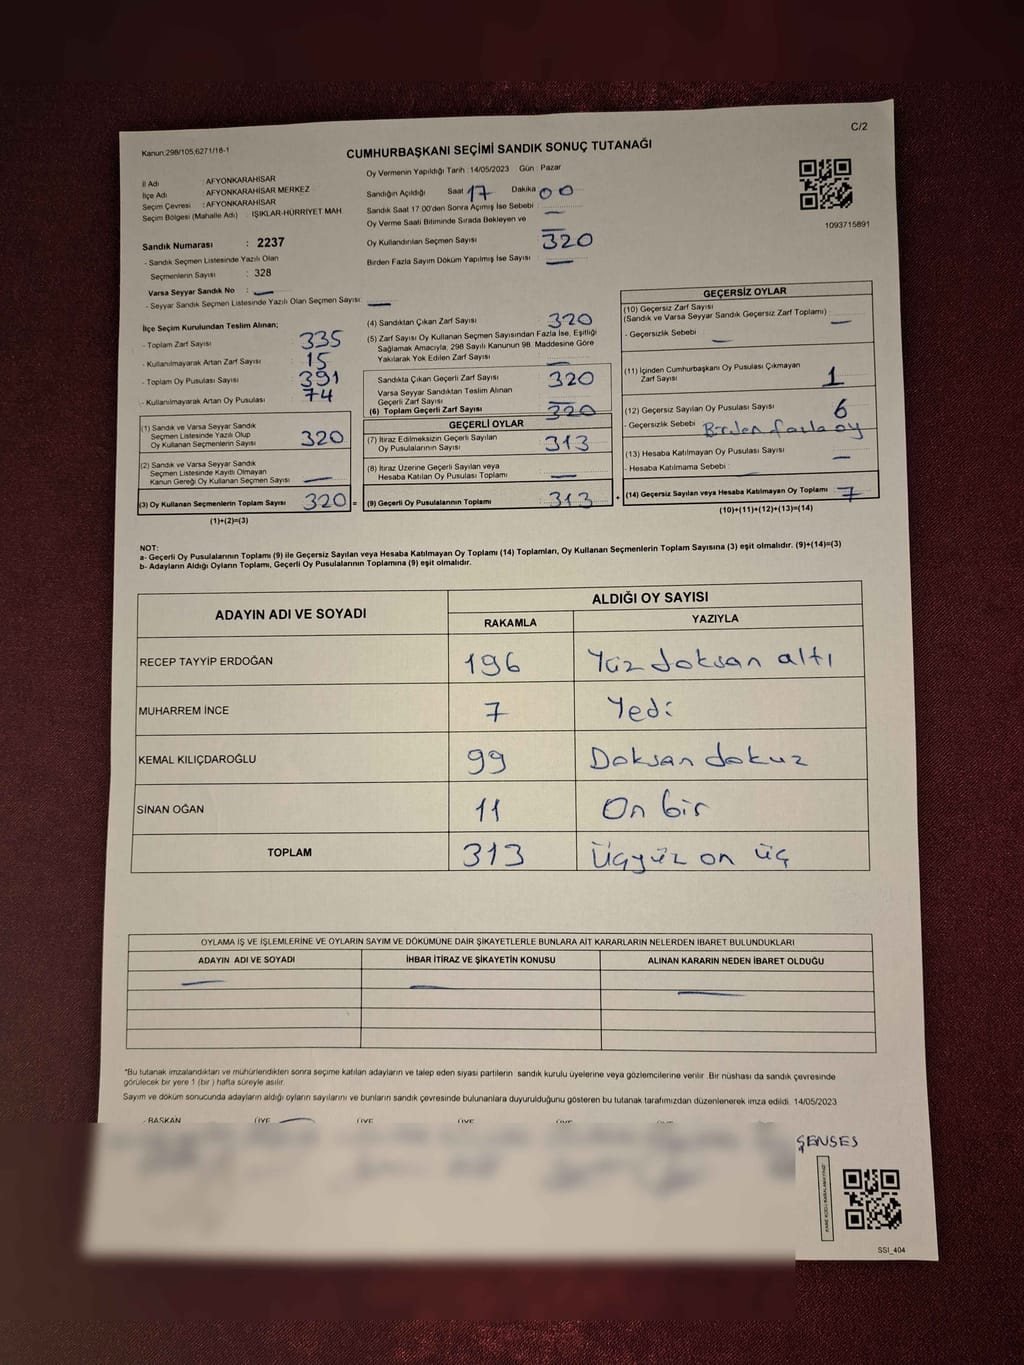 C/2
Kanun:298/105,6271/18-1
CUMHURBAŞKANI SEÇİMİ SANDIK SONUÇ TUTANAĞI
İl Adı : AFYONKARAHİSAR
İlçe Adı : AFYONKARAHİSAR MERKEZ
Seçim Çevresi : AFYONKARAHİSAR
Seçim Bölgesi (Mahalle Adı) : IŞIKLAR-HÜRRİYET MAH
Sandık Numarası : 2237
- Sandık Seçmen Listesinde Yazılı Olan
Seçmenlerin Sayısı : 328
Varsa Seyyar Sandık No : —
- Seyyar Sandık Seçmen Listesinde Yazılı Olan Seçmen Sayısı: —
Oy Vermenin Yapıldığı Tarih :14/05/2023 Gün : Pazar
Sandığın Açıldığı Saat 17 Dakika 00
Sandık Saat 17:00'den Sonra Açılmış İse Sebebi : —
Oy Verme Saati Bitiminde Sırada Bekleyen ve
Oy Kullandırılan Seçmen Sayısı — 320
Birden Fazla Sayım Döküm Yapılmış İse Sayısı : —
1093715891
İlçe Seçim Kurulundan Teslim Alınan;
- Toplam Zarf Sayısı 335
- Kullanılmayarak Artan Zarf Sayısı 15
- Toplam Oy Pusulası Sayısı 391
- Kullanılmayarak Artan Oy Pusulası 74
(1) Sandık ve Varsa Seyyar Sandık
Seçmen Listesinde Yazılı Olup
Oy Kullanan Seçmenlerin Sayısı 320
(2) Sandık ve Varsa Seyyar Sandık
Seçmen Listesinde Kayıtlı Olmayan
Kanun Gereği Oy Kullanan Seçmen Sayısı —
(3) Oy Kullanan Seçmenlerin Toplam Sayısı 320 =
(1)+(2)=(3)
(4) Sandıktan Çıkan Zarf Sayısı 320
(5) Zarf Sayısı Oy Kullanan Seçmen Sayısından Fazla İse, Eşitliği
Sağlamak Amacıyla, 298 Sayılı Kanunun 98. Maddesine Göre
Yakılarak Yok Edilen Zarf Sayısı —
Sandıkta Çıkan Geçerli Zarf Sayısı 320
Varsa Seyyar Sandıktan Teslim Alınan
Geçerli Zarf Sayısı —
(6) Toplam Geçerli Zarf Sayısı 320
GEÇERLİ OYLAR
(7) İtiraz Edilmeksizin Geçerli Sayılan
Oy Pusulalarının Sayısı 313
(8) İtiraz Üzerine Geçerli Sayılan veya
Hesaba Katılan Oy Pusulası Toplamı —
(9) Geçerli Oy Pusulalarının Toplamı 313 +
GEÇERSİZ OYLAR
(10) Geçersiz Zarf Sayısı
(Sandık ve Varsa Seyyar Sandık Geçersiz Zarf Toplamı) —
- Geçersizlik Sebebi : —
(11) İçinden Cumhurbaşkanı Oy Pusulası Çıkmayan
Zarf Sayısı 1
(12) Geçersiz Sayılan Oy Pusulası Sayısı 6
- Geçersizlik Sebebi : Birden fazla oy
(13) Hesaba Katılmayan Oy Pusulası Sayısı —
- Hesaba Katılmama Sebebi :
(14) Geçersiz Sayılan veya Hesaba Katılmayan Oy Toplamı 7
(10)+(11)+(12)+(13)=(14)
NOT:
a- Geçerli Oy Pusulalarının Toplamı (9) ile Geçersiz Sayılan veya Hesaba Katılmayan Oy Toplamı (14) Toplamları, Oy Kullanan Seçmenlerin Toplam Sayısına (3) eşit olmalıdır. (9)+(14)=(3)
b- Adayların Aldığı Oyların Toplamı, Geçerli Oy Pusulalarının Toplamına (9) eşit olmalıdır.
ADAYIN ADI VE SOYADI ALDIĞI OY SAYISI
RAKAMLA YAZIYLA
RECEP TAYYİP ERDOĞAN 196 Yüz doksan altı
MUHARREM İNCE 7 Yedi
KEMAL KILIÇDAROĞLU 99 Doksan dokuz
SİNAN OĞAN 11 On bir
TOPLAM 313 Üçyüz on üç
OYLAMA İŞ VE İŞLEMLERİNE VE OYLARIN SAYIM VE DÖKÜMÜNE DAİR ŞİKAYETLERLE BUNLARA AİT KARARLARIN NELERDEN İBARET BULUNDUKLARI
ADAYIN ADI VE SOYADI İHBAR İTİRAZ VE ŞİKAYETİN KONUSU ALINAN KARARIN NEDEN İBARET OLDUĞU
— — —
*Bu tutanak imzalandıktan ve mühürlendikten sonra seçime katılan adayların ve talep eden siyasi partilerin sandık kurulu üyelerine veya gözlemcilerine verilir. Bir nüshası da sandık çevresinde
görülecek bir yere 1 (bir ) hafta süreyle asılır.
Sayım ve döküm sonucunda adayların aldığı oyların sayılarını ve bunların sandık çevresinde bulunanlara duyurulduğunu gösteren bu tutanak tarafımızdan düzenlenerek imza edildi. 14/05/2023
BAŞKAN ÜYE ÜYE ÜYE ÜYE ÜYE
ŞENSES
SSI_404